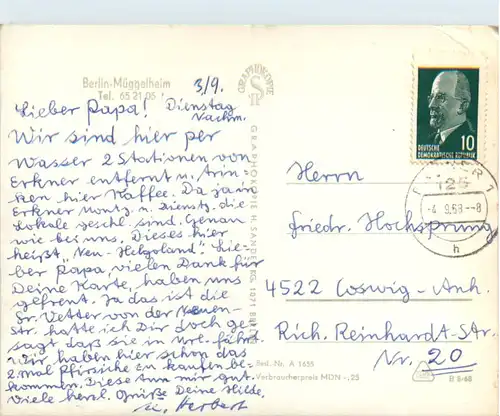 Berlin-Müggelheim
Tel. 65 21 05
3/9.
Lieber Papa! Dienstag
Nachm.
Wir sind hier per
Wasser 2 Stationen von
Erkner entfernt u. trin-
ken hier Kaffee. Da ja in
Erkner Montg. u. Dienstg. die
Lokale geschl. sind. Genau
wie bei uns. Dieses hier
heißt „Neu-Helgoland". Lie-
ber Papa, vielen Dank für
Deine Karte, haben uns
gefreut. Ja das ist die
Fr. Vetter von der Neuen-
Str. hatte ich Dir doch ge-
sagt daß sie in Url. fährt.
Wir haben hier schon das
2. mal Pfirsiche zu kaufen be-
kommen. Diese tun mir gut.
Viele herzl. Grüße Deine Hilde.
u. Herbert
GRAPHOKOPIE
GRAPHOKOPIE H. SANDER KG, 1071 BERLIN
Best.-Nr. A 1655
Verbraucherpreis MDN -,25
DEUTSCHE
DEMOKRATISCHE REPUBLIK
10
125
-4.9.68--8
h
Herrn
Friedr. Hochsprung
4522 Coswig-Anh.
Rich. Reinhardt-Str.
Nr. 20
B 8-68